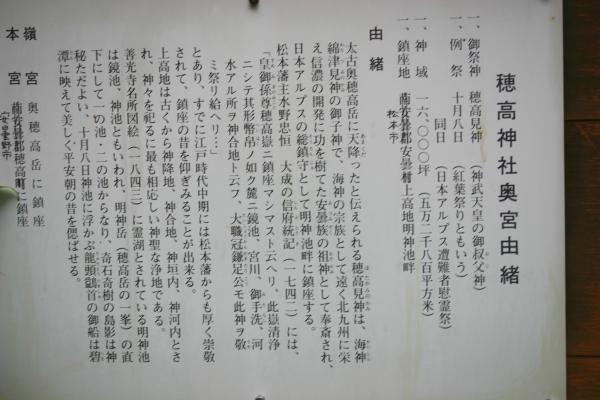 穂高神社奥宮由緒
一、御祭神　穂高見神　（神武天皇の御叔父神）
一、例　祭　十月八日　（紅葉祭りともいう）
同日　（日本アルプス遭難者慰霊祭）
一、神　域　一六、〇〇〇坪　（五万二千八百平方米）
一、鎮座地　南安曇郡安曇村上高地明神池畔
松本市
由緒
太古奥穂高岳に天降ったと伝えられる穂高見神は、海神
綿津見神の御子神で、海神の宗族として遠く北九州に栄
え信濃の開発に功を樹てた安曇族の祖神として奉斎され、
日本アルプスの総鎮守として明神池畔に鎮座する。
松本藩主水野忠恒　大成の信府統記（一七四二）には、
「皇御孫尊穂高嶽ニ鎮座マシマスト云ヘリ、此嶽清浄
ニシテ其形幣帛ノ如ク麓ニ鏡池、宮川、御手洗、河
水アル所ヲ神合地ト云フ、大職冠鎌足公モ此神ヲ敬
ミ祭リ給ヘリ…」
とあり、すでに江戸時代中期には松本藩からも厚く崇敬
されて、鎮座の昔を仰ぎみることが出来る。
上高地は古くから神降地、神合地、神垣内、神河内とさ
れ、神々を祀るに最も相応しい神聖な浄地である。
善光寺名所図絵（一八四三）に霊湖とされている明神池
は鏡池、神池ともいわれ、明神岳（穂高岳の一峯）の直
下にして一の池・二の池からなり、奇石奇樹の島影は神
秘ただよい、十月八日神池に浮かぶ龍頭鷁首の御船は碧
潭に映えて美しく平安朝の昔を偲ばせる。
嶺　宮　奥穂高岳に鎮座
本　宮　南安曇郡穂高町に鎮座
安曇野市